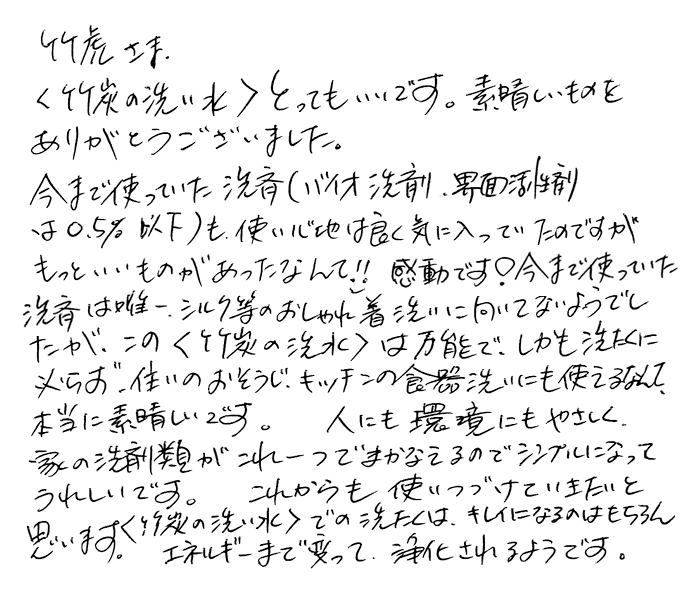 竹虎さま.
〈竹炭の洗い水〉とってもいいです。素晴しいものを
ありがとうございました。
今まで使っていた洗済(バイオ洗剤、界面活性剤
は0.5%以下)も、使い心地は良く気に入っていたのですが
もっといいものがあったなんて!! 感動です!今まで使っていた
洗済は唯一、シルク等のおしゃれ着洗いに向いてないようでし
たが、この〈竹炭の洗い水〉は万能で、しかも洗たくに
メらず、住いのおそうじ、キッチンの食器洗いにも使えるなんて、
本当に素晴しいです。 人にも環境にもやさしく、
家の洗剤類がこれ一つでまかなえるのでシンプルになって
うれしいです。 これからも使いつづけていきたいと
思います。〈竹炭の洗い水〉での洗たくは、キレイになるのはもちろん
エネルギーまで変って、浄化されるようです。